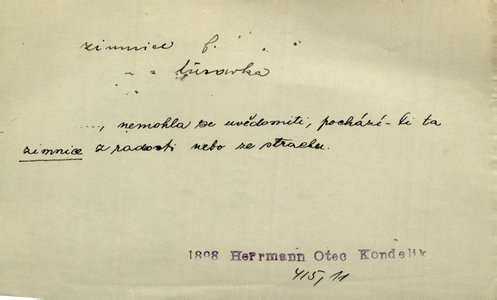 zimnice f.
„ „ třesavka
..., nemohla se uvědomiti, pochází-li ta
zimnice z radosti nebo ze strachu.
1898 Herrmann Otec Kondelík
415, 11